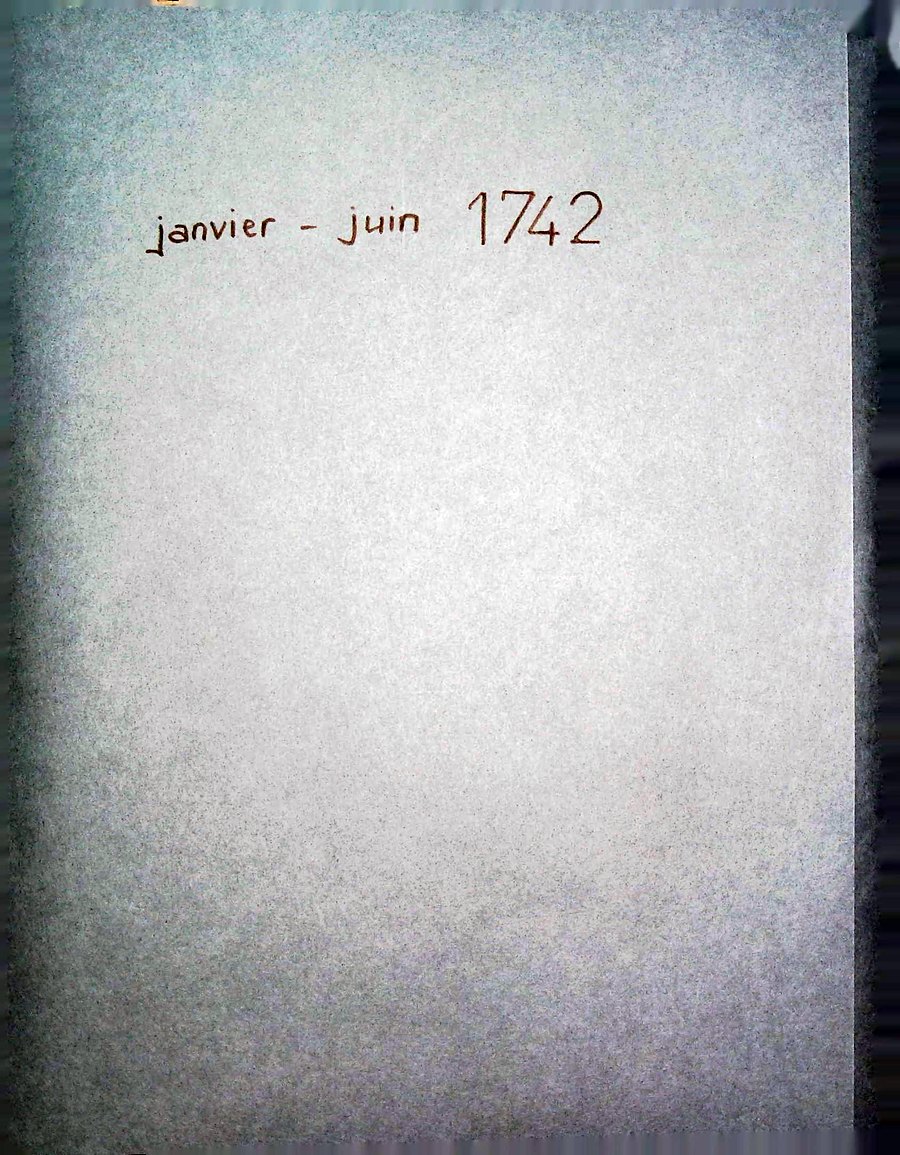 janvier - juin 1742